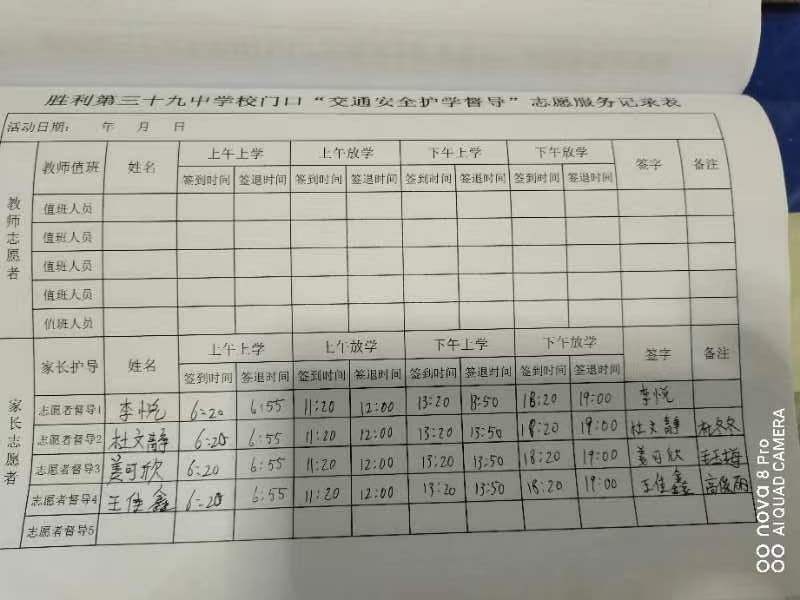 胜利第三十九中学校门口“交通安全护学督导”志愿服务记录表
活动日期： 年 月 日
教师志愿者
教师值班 姓名 上午上学 上午放学 下午上学 下午放学 签字 备注
签到时间 签退时间 签到时间 签退时间 签到时间 签退时间 签到时间 签退时间
值班人员
值班人员
值班人员
值班人员
值班人员
家长志愿者
家长护导 姓名 上午上学 上午放学 下午上学 下午放学 签字 备注
签到时间 签退时间 签到时间 签退时间 签到时间 签退时间 签到时间 签退时间
志愿者督导1 李悦 6:20 6:55 11:20 12:00 13:20 13:50 18:20 19:00 李悦
志愿者督导2 杜文静 6:20 6:55 11:20 12:00 13:20 13:50 18:20 19:00 杜文静
志愿者督导3 姜可欣 6:20 6:55 11:20 12:00 13:20 13:50 18:20 19:00 姜可欣
志愿者督导4 王佳鑫 6:20 6:55 11:20 12:00 13:20 13:50 18:20 19:00 王佳鑫 高俊丽
志愿者督导5
nova 8 Pro
AI QUAD CAMERA